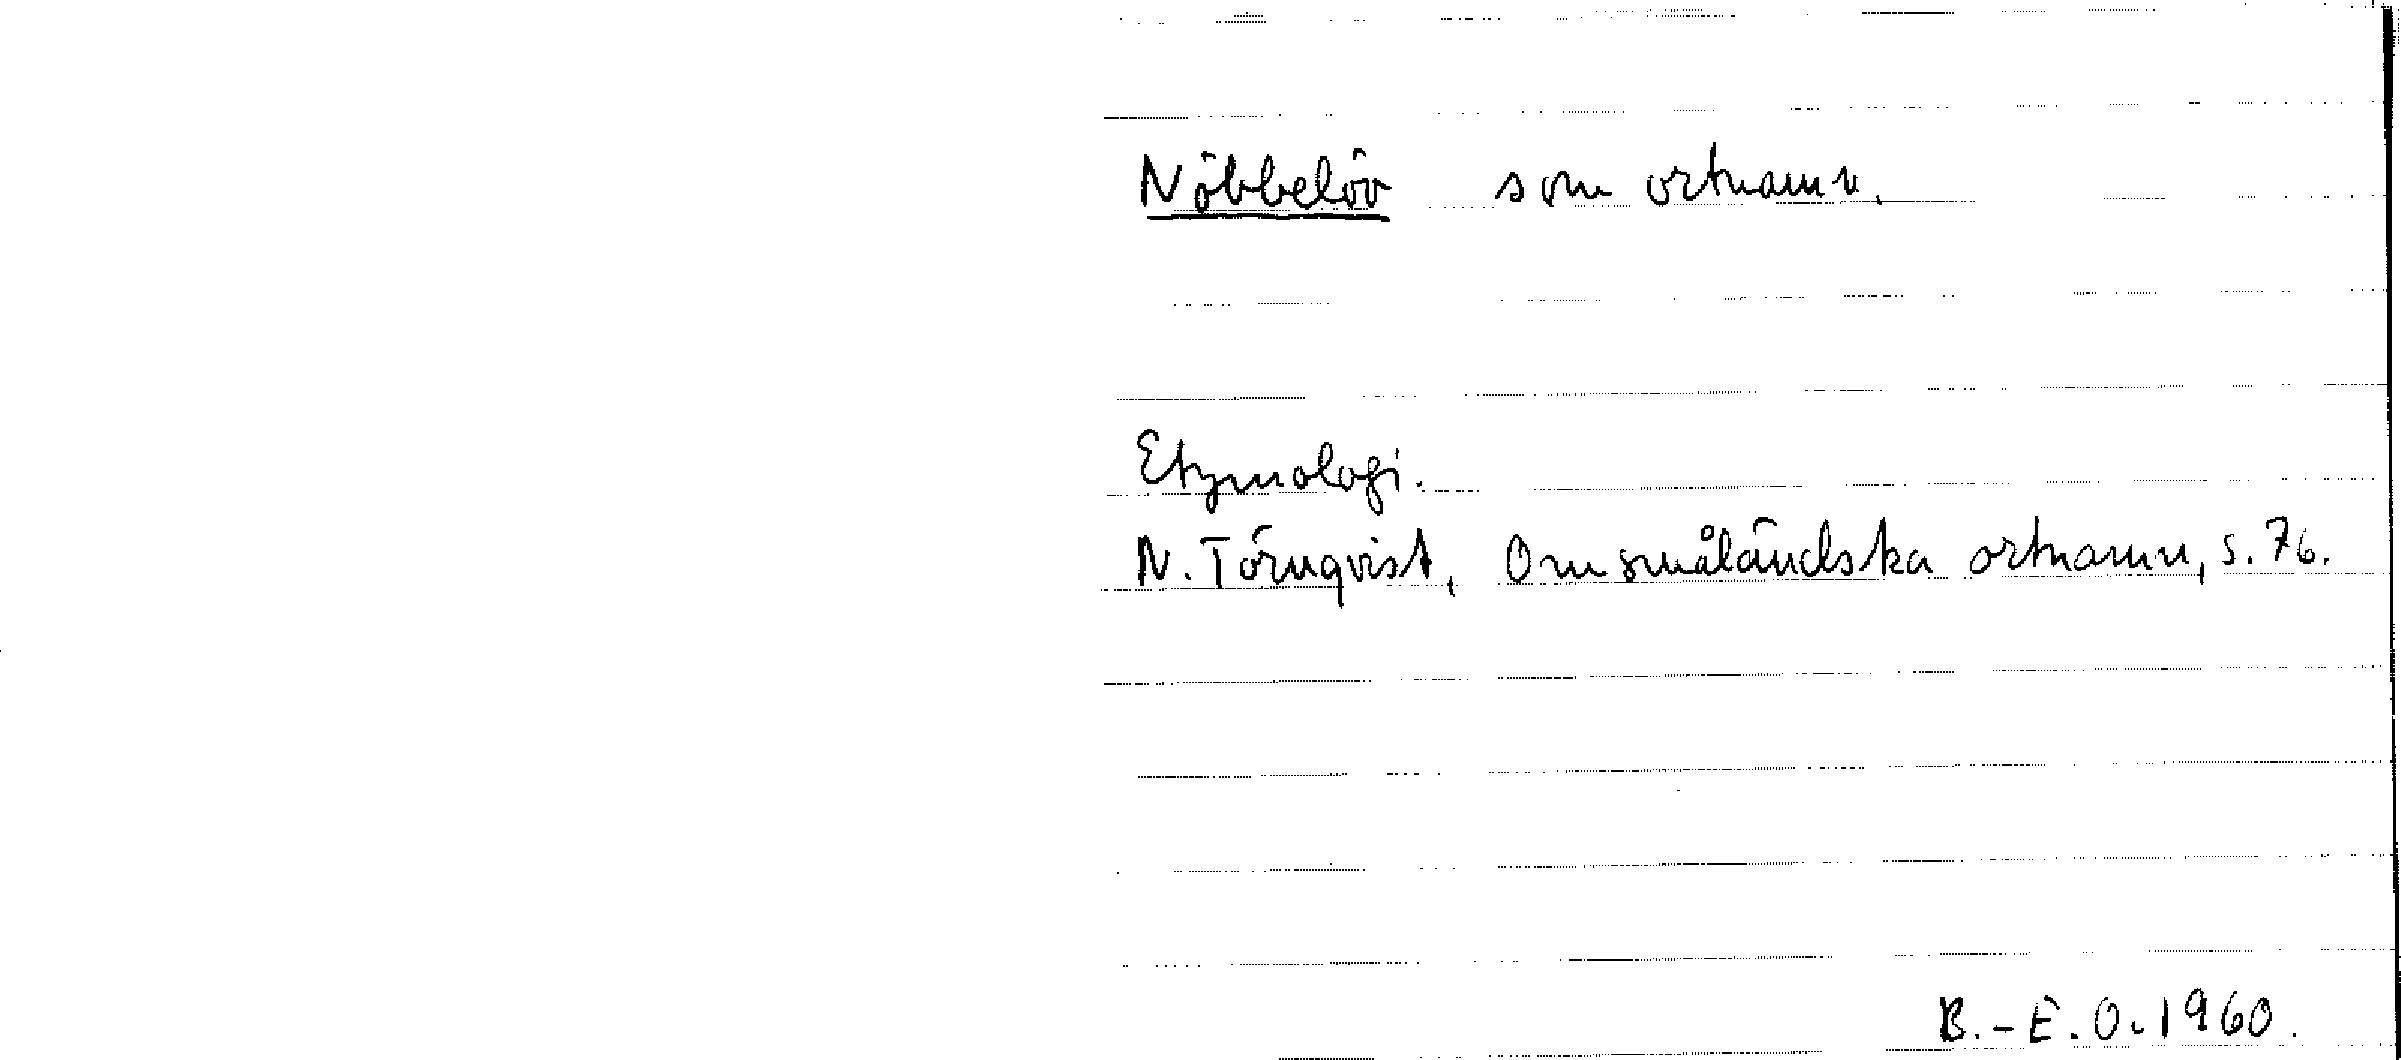 Nöbbelöv som ortnamn.
Etymologi.
N. Törnqvist, Om småländska ortnamn, s. 76.
B.-E. O. 1960.